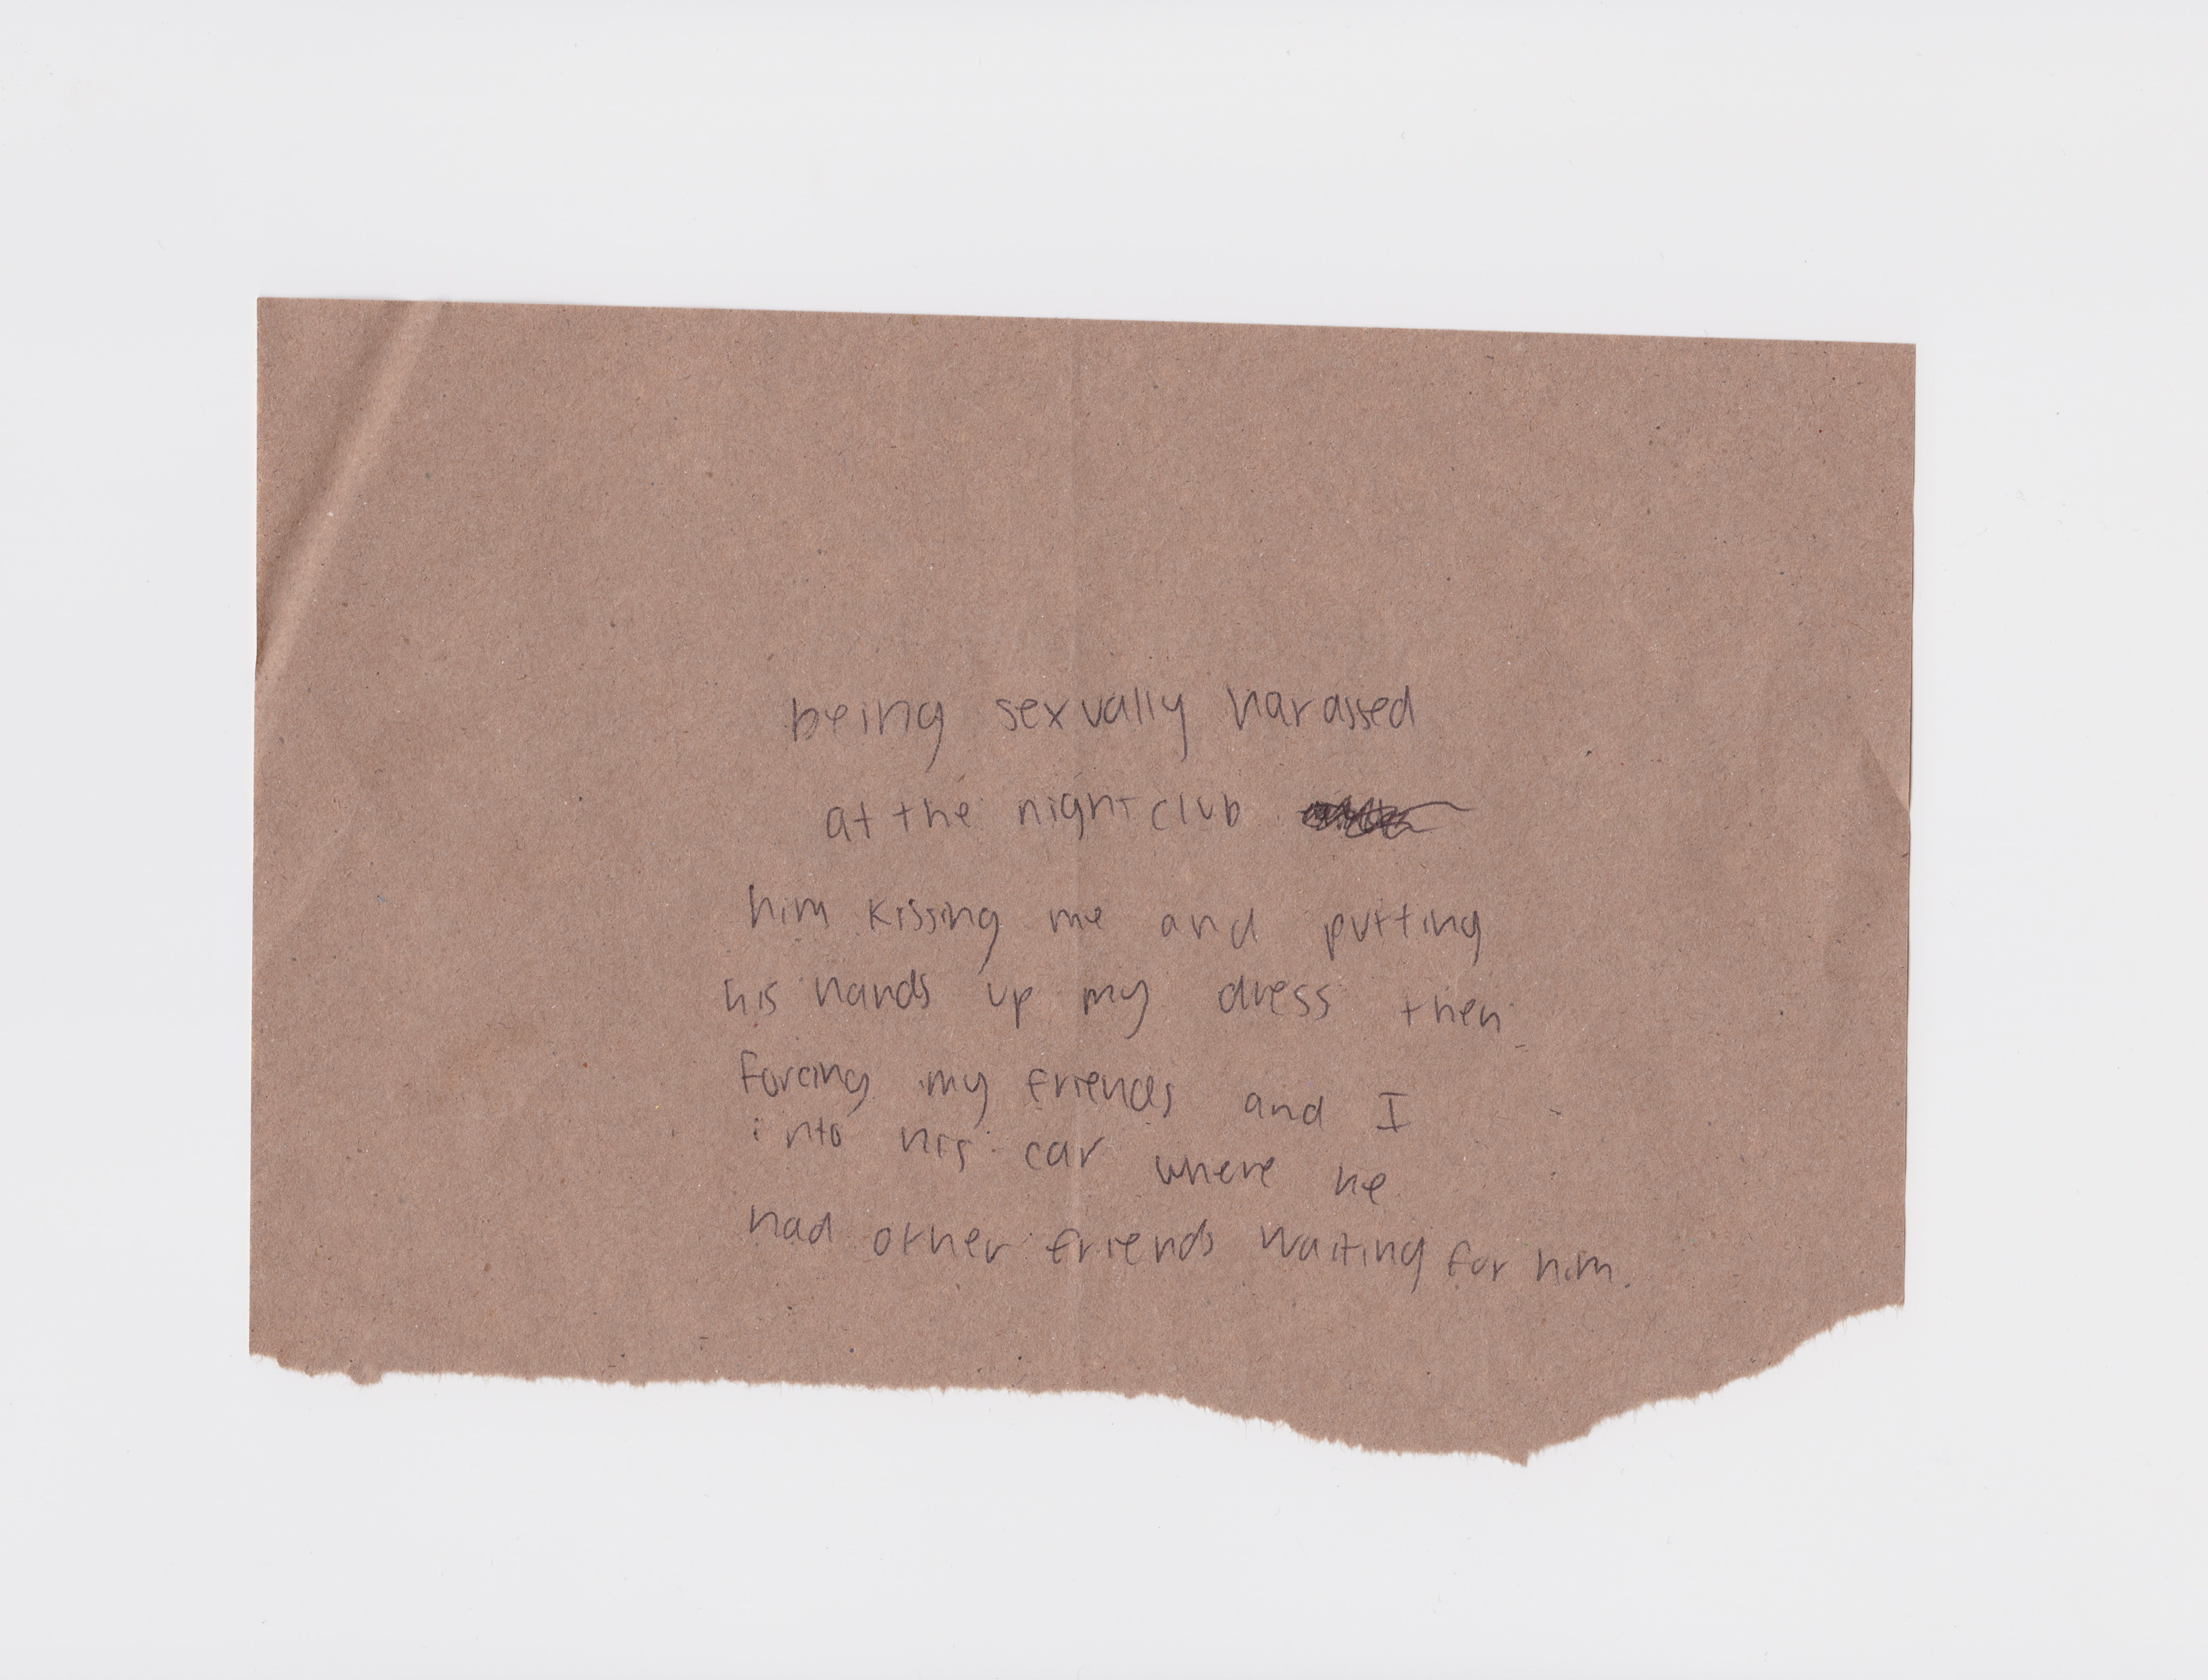 being sexually harassed
at the nightclub
him kissing me and putting
his hands up my dress then
forcing my friends and I
into his car where he
had other friends waiting for him.